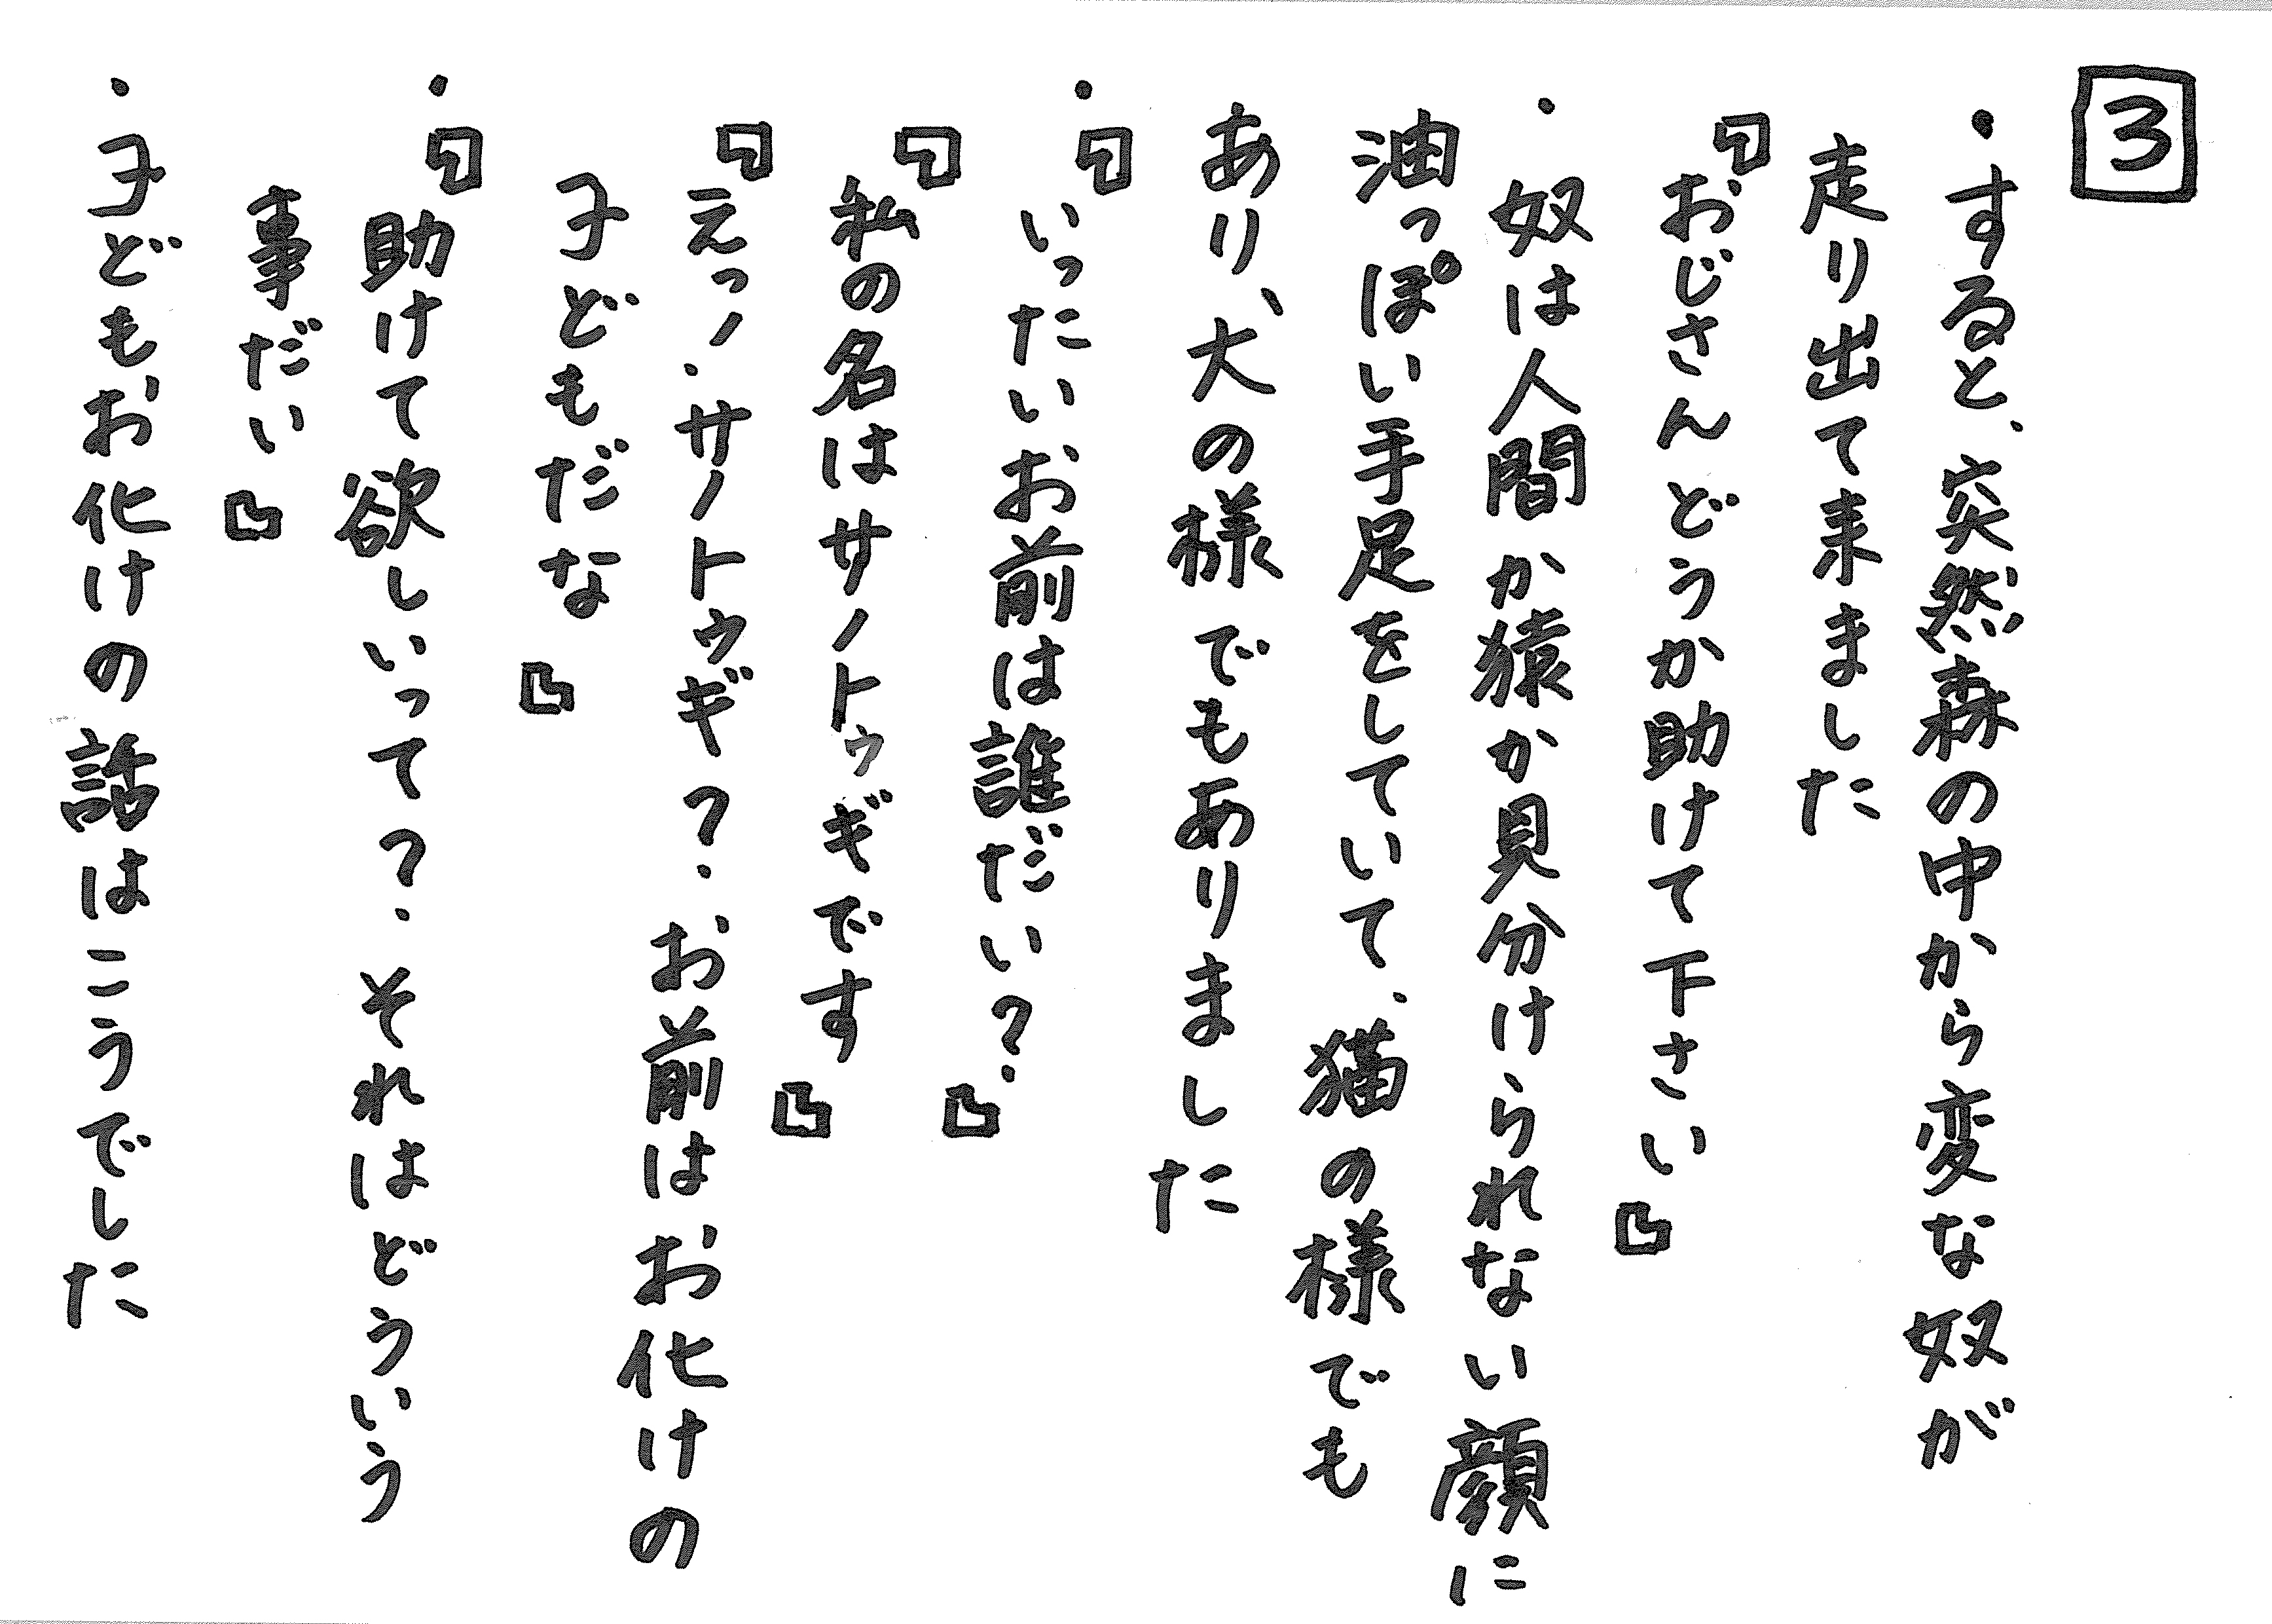 3
・すると、突然森の中から変な奴が
走り出て来ました
『おじさんどうか助けて下さい』
・奴は人間か猿か見分けられない顔に
油っぽい手足をしていて、猫の様でも
あり、犬の様でもありました
・『いったいお前は誰だい?』
『私の名はサノトゥギです』
『えっ！サノトゥギ?お前はお化けの
子どもだな』
・『助けて欲しいって?それはどういう
事だい』
・子どもお化けの話はこうでした